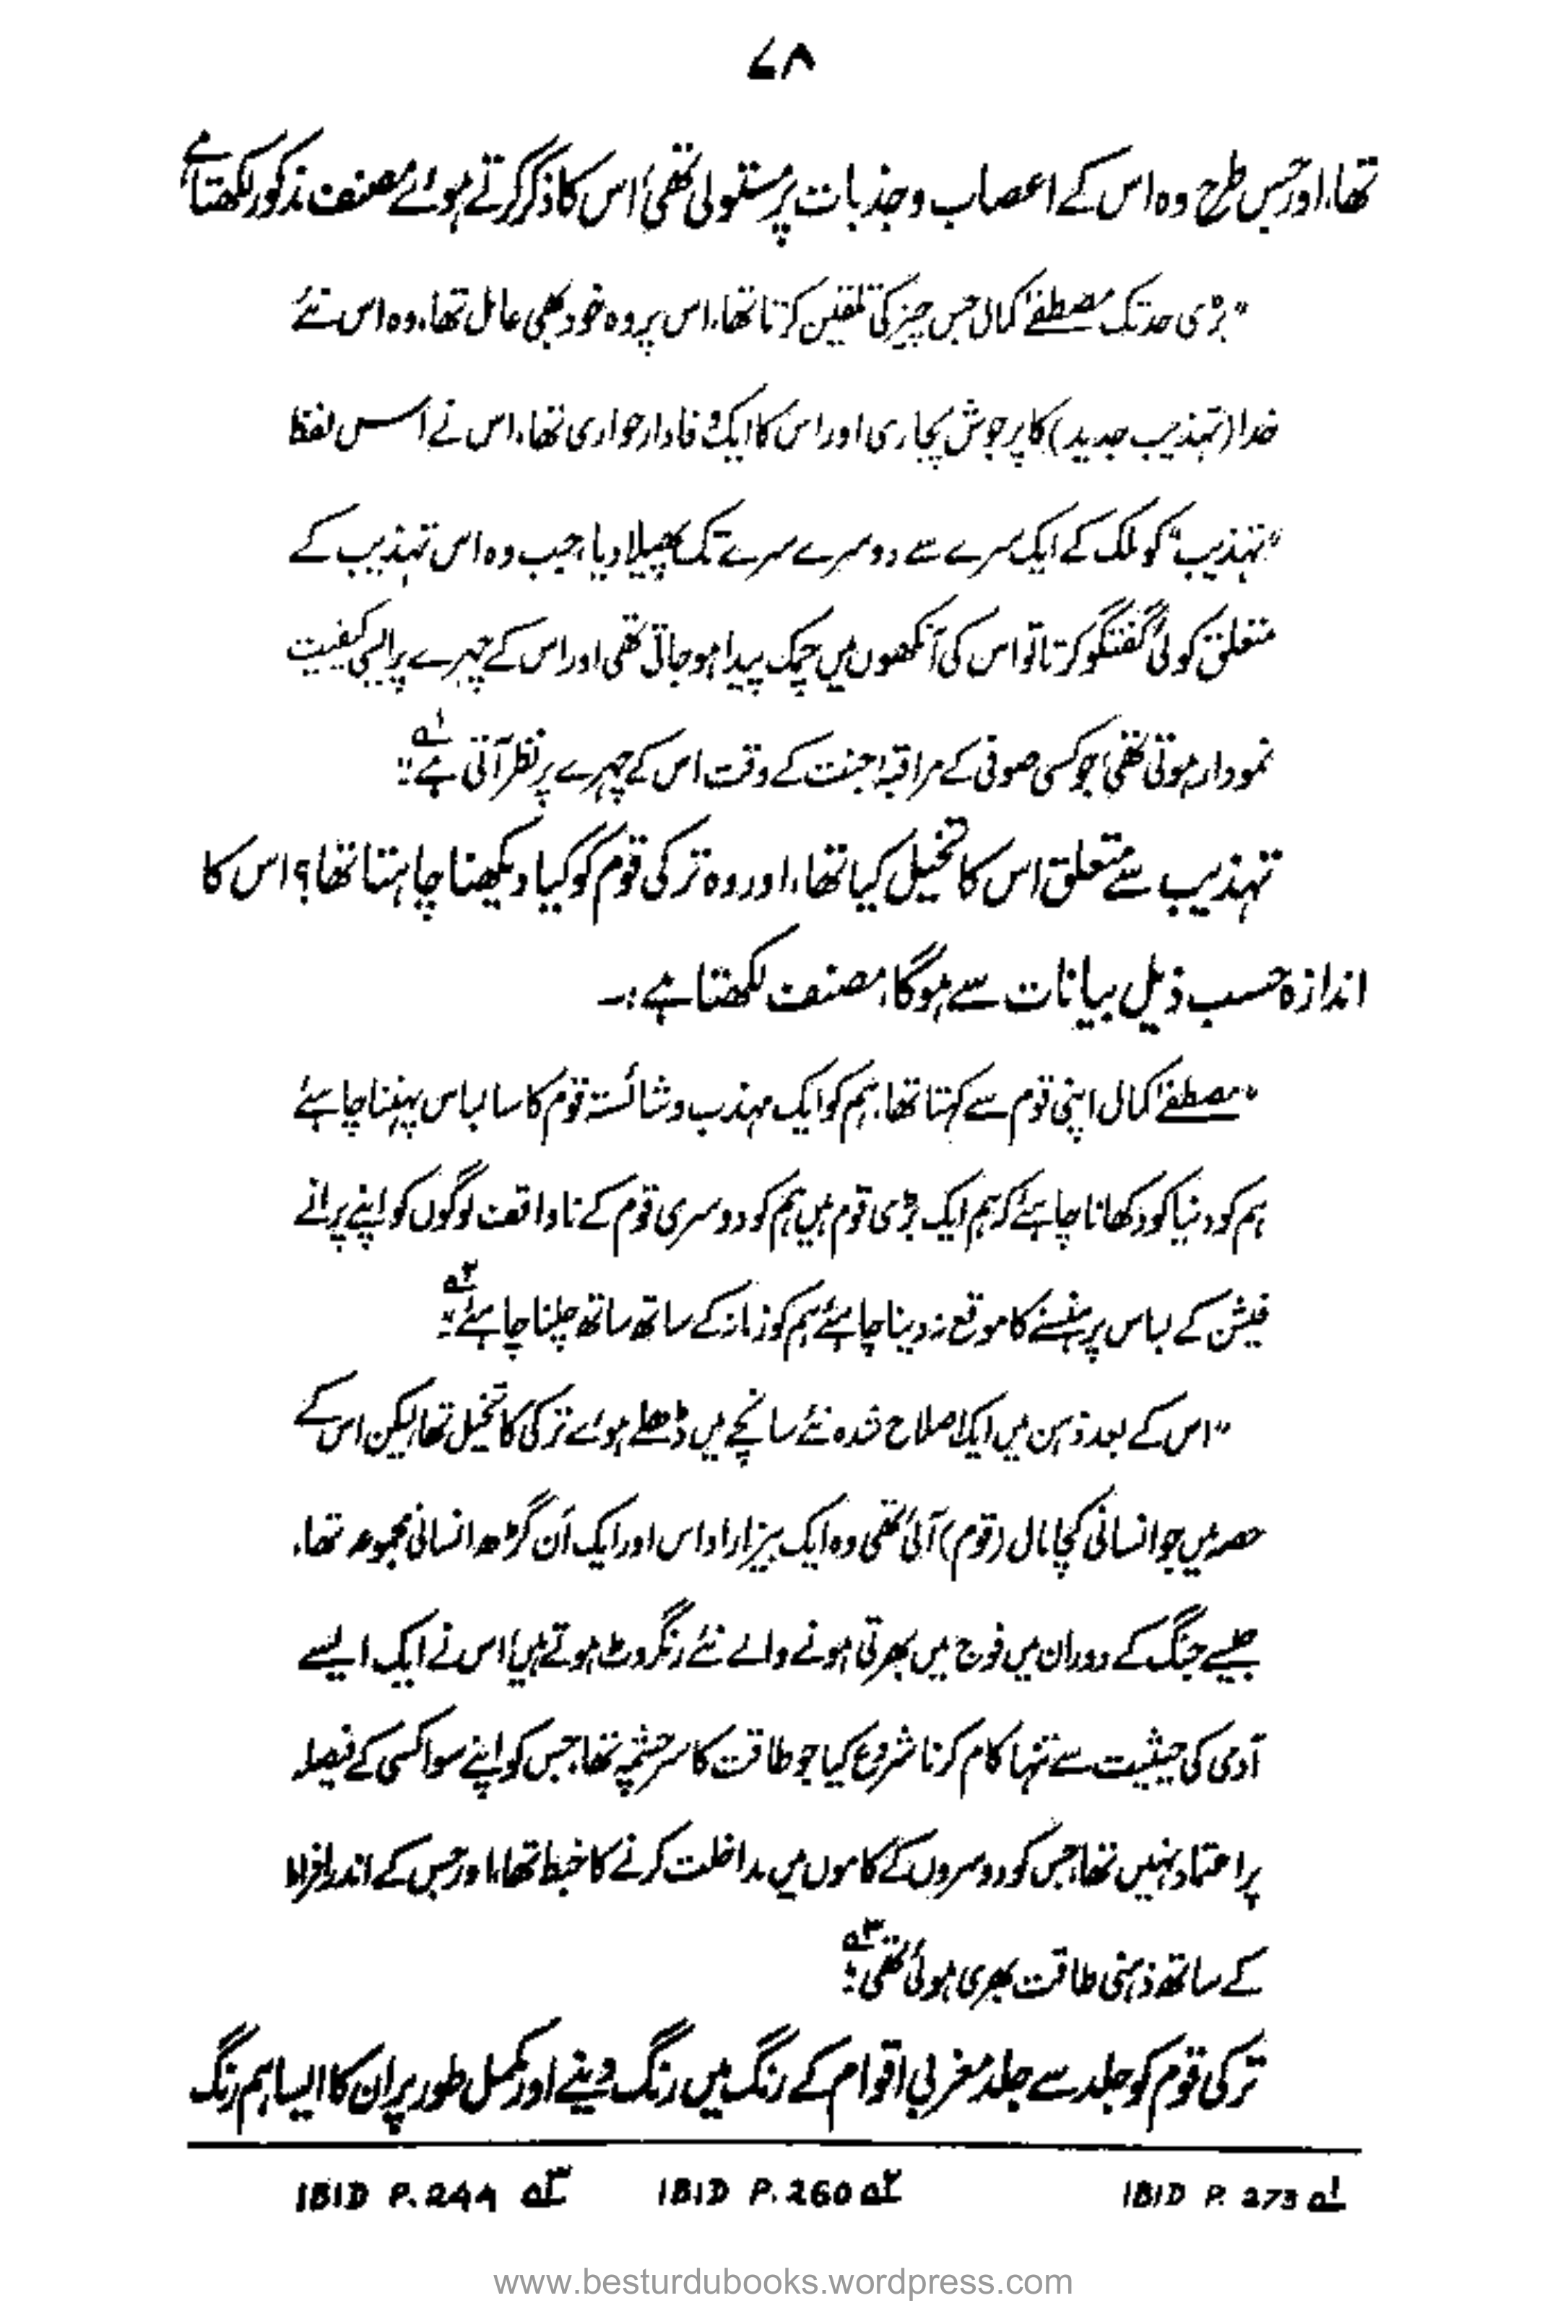 ۷۸
تھا، اور جس طرح وہ اس کے اعصاب و جذبات پر مستولی تھی، اس کا ذکر کرتے ہوئے مصنف مذکور لکھتا ہے
"بڑی حد تک مصطفےٰ کمال جس چیز کی تلقین کرتا تھا، اس پر وہ خود بھی عامل تھا، وہ اس نئے
خدا (تہذیب جدید) کا پرجوش پجاری اور اس کا ایک وفادار حواری تھا، اس نے اس لفظ
"تہذیب" کو ملک کے ایک سرے سے دوسرے سرے تک پھیلا دیا، جب وہ اس تہذیب کے
متعلق کوئی گفتگو کرتا تو اس کی آنکھوں میں چمک پیدا ہو جاتی تھی اور اس کے چہرے پر ایسی کیفیت
نمودار ہوتی تھی جو کسی صوفی کے مراقبۂ جنت کے وقت اس کے چہرے پر نظر آتی ہے"؎۱
تہذیب سے متعلق اس کا تخیل کیا تھا، اور وہ ترکی قوم کو کیا دیکھنا چاہتا تھا؟ اس کا
اندازہ حسب ذیل بیانات سے ہوگا، مصنف لکھتا ہے:۔
"مصطفےٰ کمال اپنی قوم سے کہتا تھا، ہم کو ایک مہذب و شائستہ قوم کا سا لباس پہننا چاہئے
ہم کو دنیا کو دکھانا چاہئے کہ ہم ایک بڑی قوم ہیں ہم کو دوسری قوم کے ناواقف لوگوں کو اپنے پرانے
فیشن کے لباس پر ہنسنے کا موقع نہ دینا چاہئے ہم کو زمانہ کے ساتھ ساتھ چلنا چاہئے"؎۲
"اس کے بعد ذہن میں ایک اصلاح شدہ نئے سانچے میں ڈھلے ہوئے ترکی کا تخیل تھا، لیکن اس کے
حصہ میں جو انسانی کچا مال (قوم) آئی تھی وہ ایک بیزار اداس اور ایک اَن گڑھ انسانی مجموعہ تھا،
جیسے جنگ کے دوران میں فوج میں بھرتی ہونے والے نئے رنگروٹ ہوتے ہیں، اس نے ایک ایسے
آدمی کی حیثیت سے تنہا کام کرنا شروع کیا جو طاقت کا سرچشمہ تھا، جس کو اپنے سوا کسی کے فیصلہ
پر اعتماد نہیں تھا، جس کو دوسروں کے کاموں میں مداخلت کرنے کا خبط تھا، اور جس کے اندر افراط
کے ساتھ ذہنی طاقت بھری ہوئی تھی"؎۳
ترکی قوم کو جلد سے جلد مغربی اقوام کے رنگ میں رنگ دینے اور مکمل طور پر ان کا ایسا ہم رنگ
؎۱ IBID P. 273 ؎۲ IBID P. 260 ؎۳ IBID P. 244
www.besturdubooks.wordpress.com